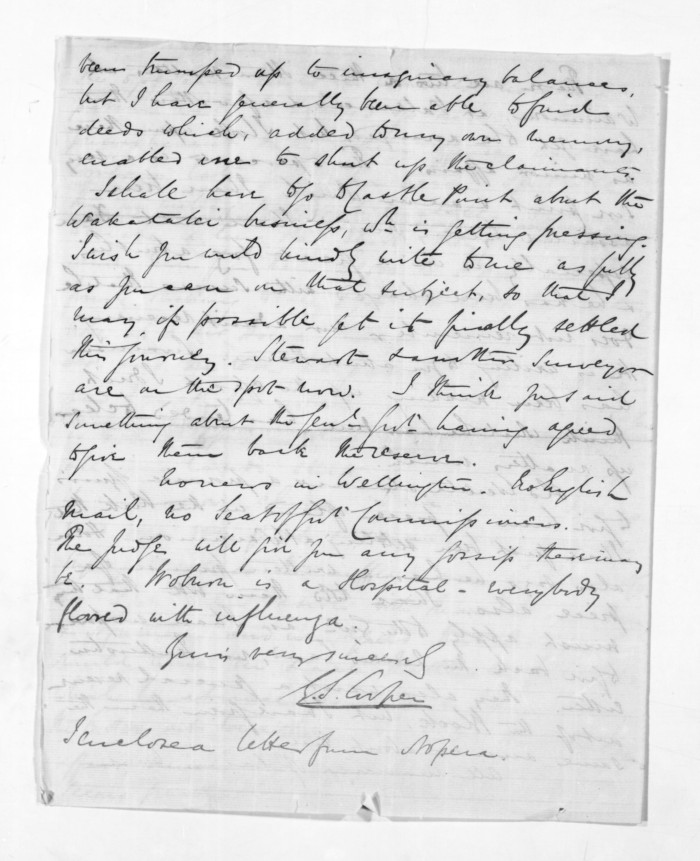 been trumped up to imaginary balances,
but I have generally been able to find
deeds which, added to my own memory,
enabled me to shut up the claimants.
I shall have to go to Castle Point about the
Wakataki business, wh. is getting pressing.
I wish you would kindly write to me as fully
as you can on that subject, so that I
may, if possible get it finally settled
this journey. Stewart & another Surveyor
are on the spot now. I think you said
something about the Genl. Govt. having agreed
to give them back the reserve.
No news in Wellington. No English
Mail, no Seat of Govt. Commissioners.
The Judge will give you any gossip there may
be. Woburn is a Hospital - everybody
floored with influenza.
Yours very sincerely
G. S. Cooper
I enclose a letter from Nopera.